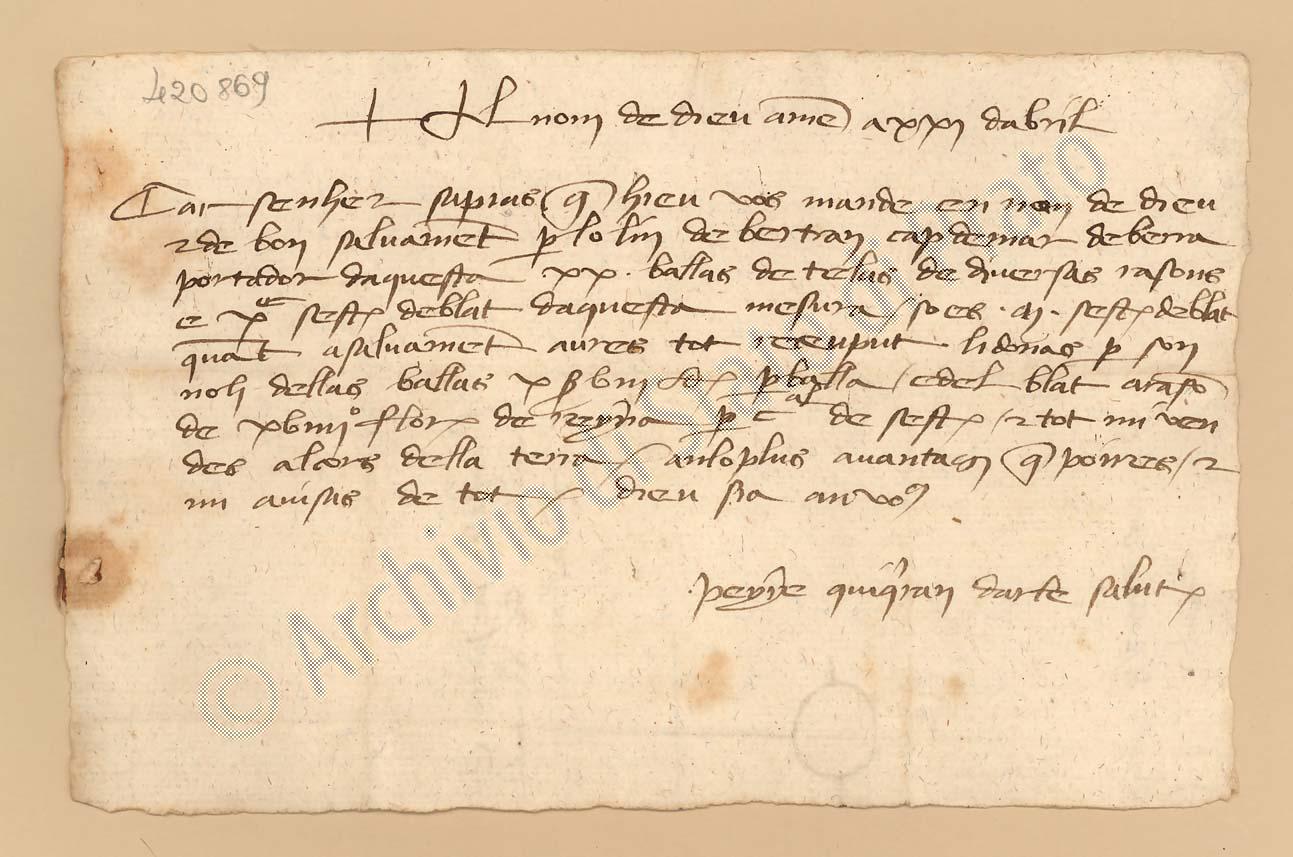 420869
+ El nom de dieu ame a xxi dabril
Car senher sapias q hieu vos mande en nom de dieu
& de bon saluamet p lo lin de bertran capdemar de berra
portador daquesta xx. ballas de telas de diuersas rasons
e sest deblat daquesta mesura / so es . . sest deblat
quāt asaluamet aures tot reseuput lidonas p son
noli dellas ballas p balla / e del blat a raso
de xbiiiiº flor de reyna p c de sest / & tot mi ven
des alcors della terra / an lo plus auantag q poires / &
mi auisas de tot / dieu sia an vos
peyre quiqran darle salut
© Archivio di Stato di Prato